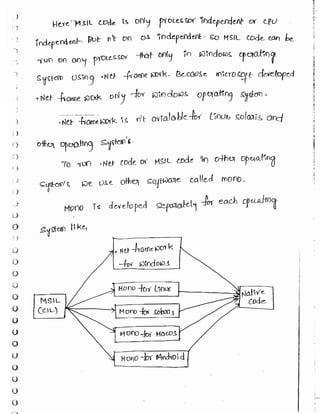 Here "MSIL code is only processor independent or CPU
independent. But n't on os independent. So MSIL code can be
run on any processor that only in windows operating
System using .Net frame work. Because microsoft developed
.Net frame work only for windows operating System.
.Net frame work is n't avialable for Linux, solaris, and
other operating System's.
To run .Net code or MSIL code in other operating
System's we use other software called mono.
Mono is developed separately for each operating
System like,
.Net framework
for windows
Mono for Linux
MSIL
(CIL)
Mono for Solaris
Native
Code
Mono for Macos
Mono for Android